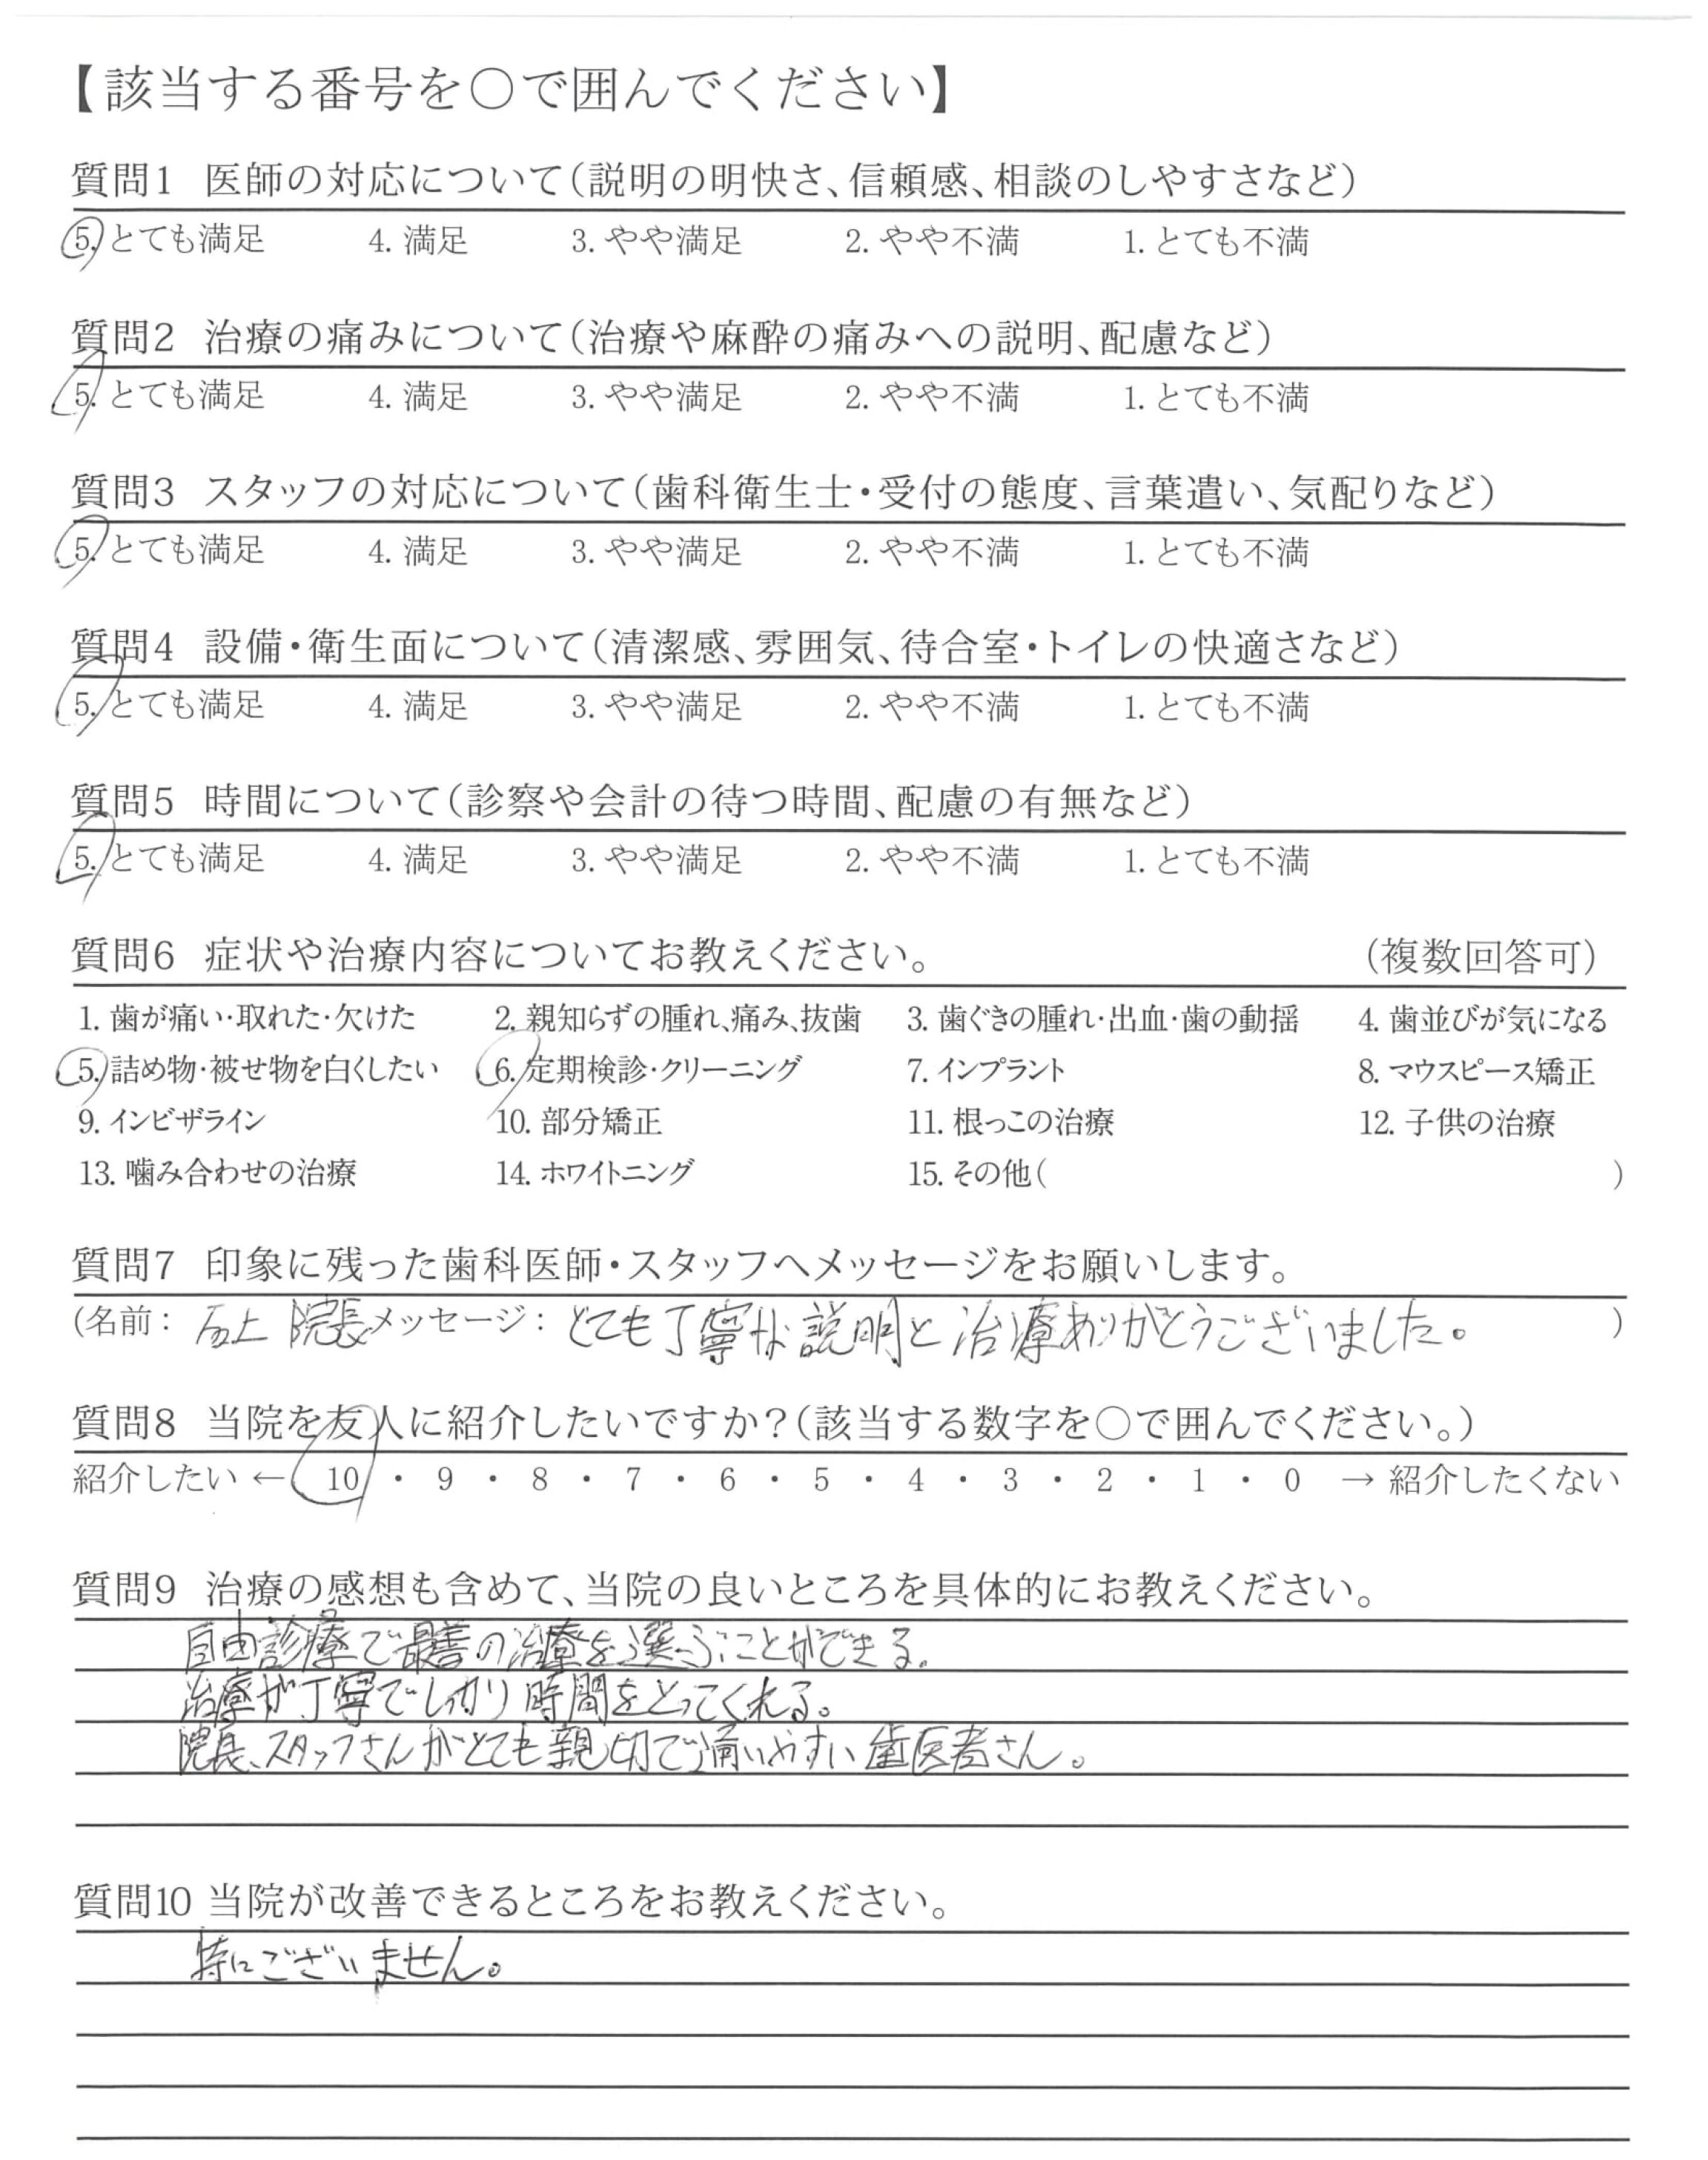 【該当する番号を○で囲んでください】
質問1 医師の対応について（説明の明快さ、信頼感、相談のしやすさなど）
5. とても満足 4. 満足 3. やや満足 2. やや不満 1. とても不満
質問2 治療の痛みについて（治療や麻酔の痛みへの説明、配慮など）
5. とても満足 4. 満足 3. やや満足 2. やや不満 1. とても不満
質問3 スタッフの対応について（歯科衛生士・受付の態度、言葉遣い、気配りなど）
5. とても満足 4. 満足 3. やや満足 2. やや不満 1. とても不満
質問4 設備・衛生面について（清潔感、雰囲気、待合室・トイレの快適さなど）
5. とても満足 4. 満足 3. やや満足 2. やや不満 1. とても不満
質問5 時間について（診察や会計の待つ時間、配慮の有無など）
5. とても満足 4. 満足 3. やや満足 2. やや不満 1. とても不満
質問6 症状や治療内容についてお教えください。 （複数回答可）
1. 歯が痛い・取れた・欠けた 2. 親知らずの腫れ、痛み、抜歯 3. 歯ぐきの腫れ・出血・歯の動揺 4. 歯並びが気になる
5. 詰め物・被せ物を白くしたい 6. 定期検診・クリーニング 7. インプラント 8. マウスピース矯正
9. インビザライン 10. 部分矯正 11. 根っこの治療 12. 子供の治療
13. 噛み合わせの治療 14. ホワイトニング 15. その他（ ）
質問7 印象に残った歯科医師・スタッフへメッセージをお願いします。
（名前： 石上 院長 メッセージ： とても丁寧な説明と治療ありがとうございました。 ）
質問8 当院を友人に紹介したいですか？（該当する数字を○で囲んでください。）
紹介したい ← 10 ・ 9 ・ 8 ・ 7 ・ 6 ・ 5 ・ 4 ・ 3 ・ 2 ・ 1 ・ 0 → 紹介したくない
質問9 治療の感想も含めて、当院の良いところを具体的にお教えください。
自由診療で最善の治療を選ぶことができる。
治療が丁寧でしっかり時間をとってくれる。
院長、スタッフさんがとても親切で通いやすい歯医者さん。
質問10 当院が改善できるところをお教えください。
特にございません。